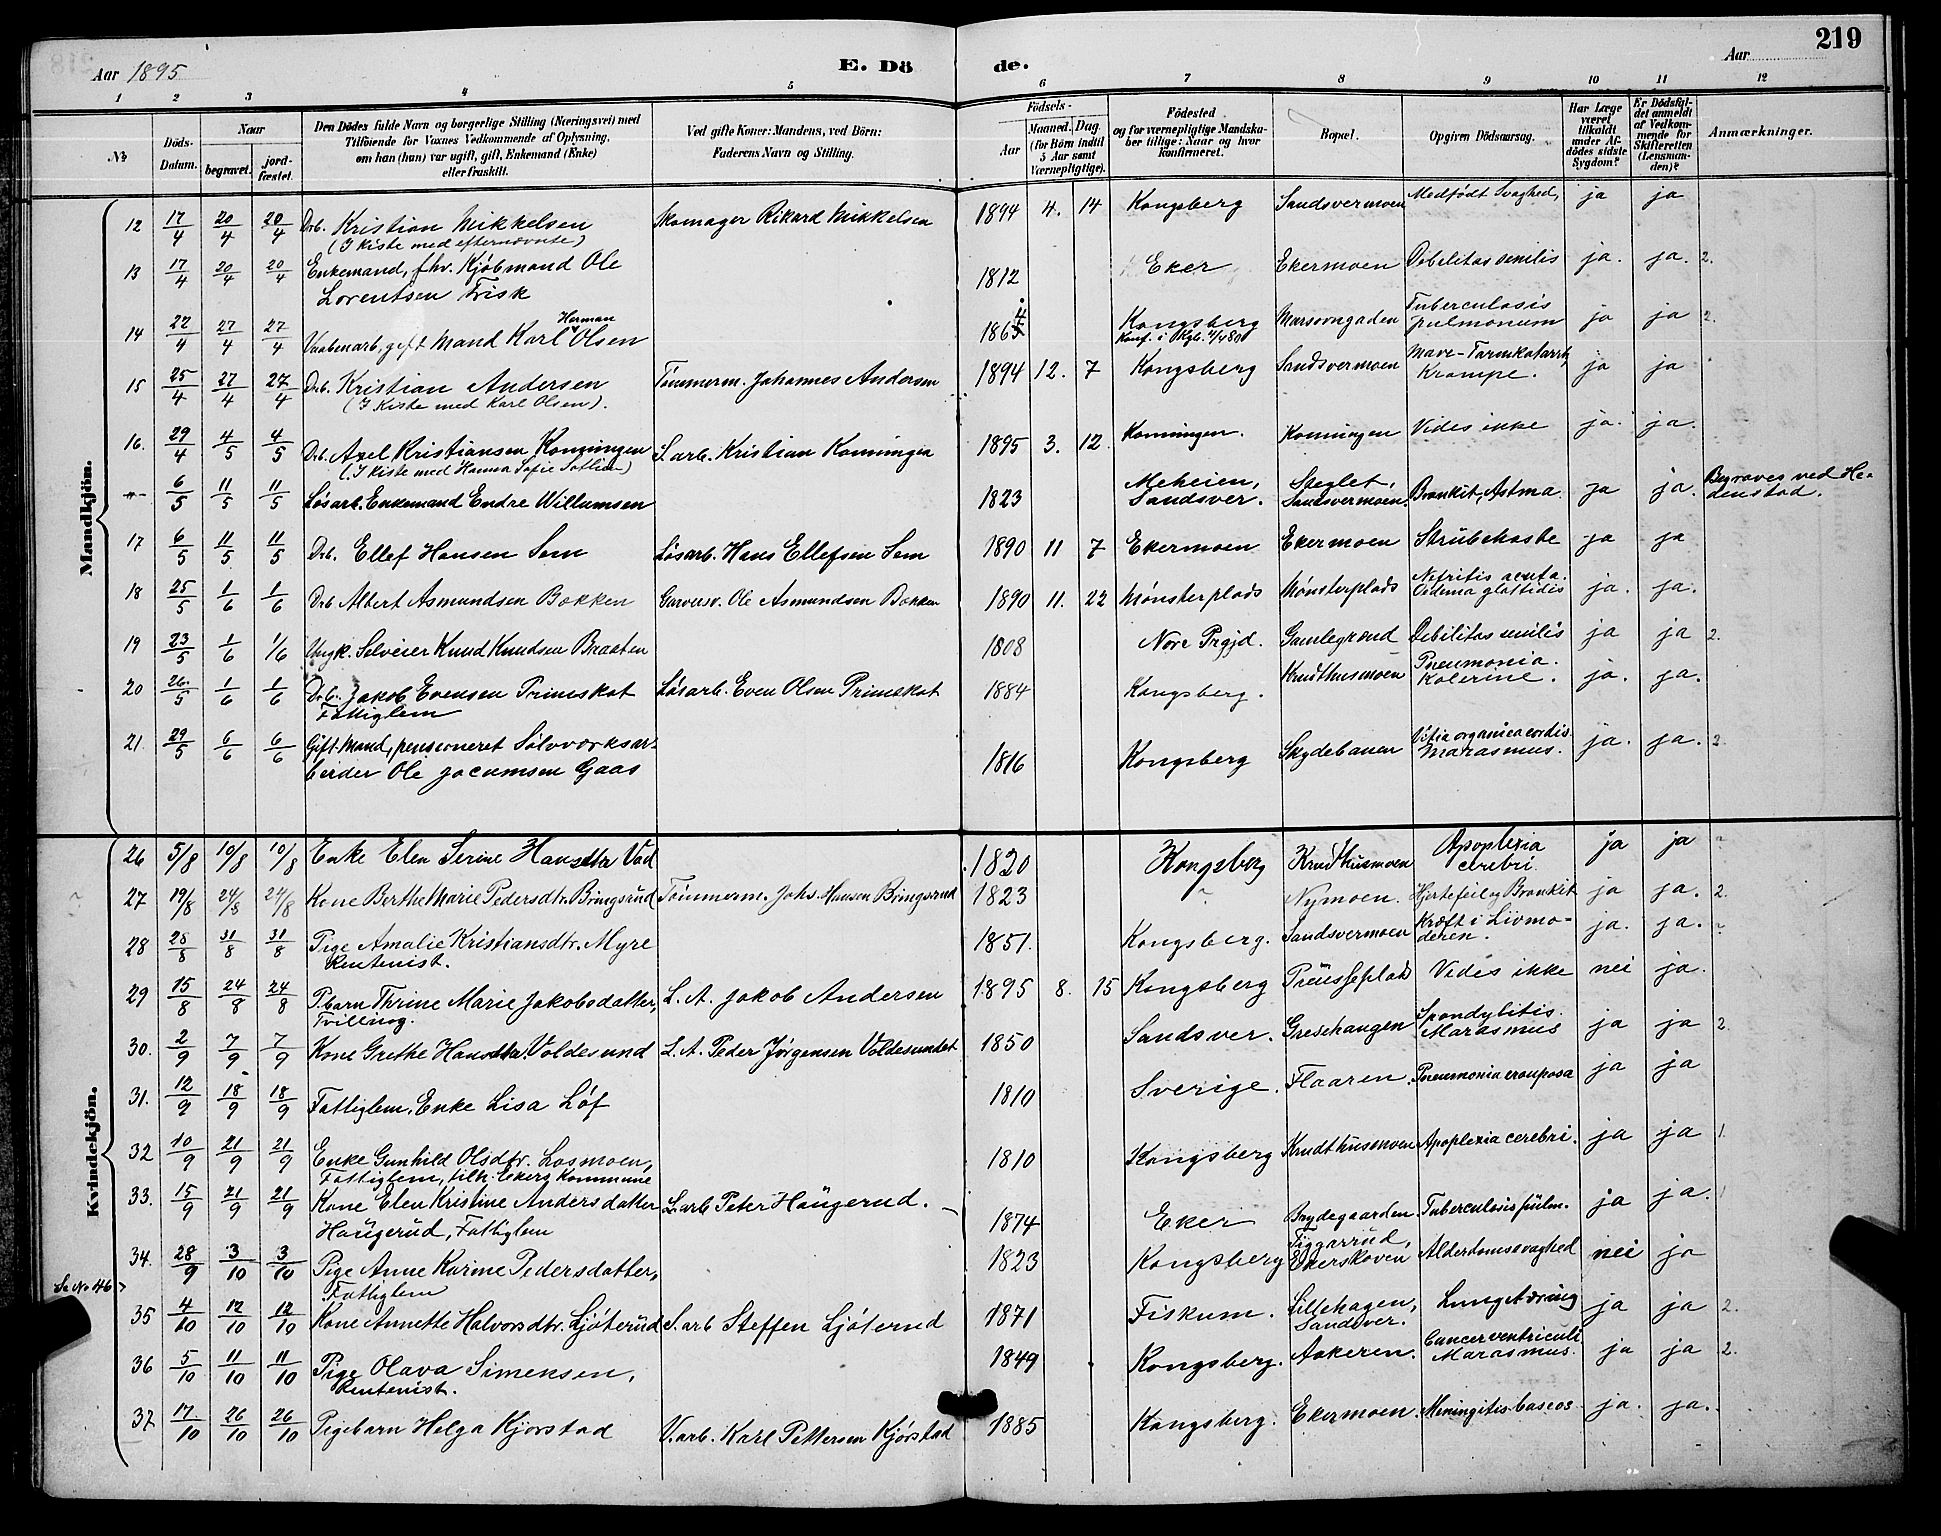 219
Aar 1895
E. Dö
de.
Aar
1 2 3 4 5 6 7 8 9 10 11 12
№
Döds-Datum.
Naar
begravet.
jord-fæstet.
Den Dödes fulde Navn og borgerlige Stilling (Næringsvei) med
Tilföiende for Voxnes Vedkommende af Oplysning,
om han (hun) var ugift, gift, Enkemand (Enke)
eller fraskilt.
Ved gifte Koner: Mandens, ved Börn:
Faderens Navn og Stilling.
Födsels-
Aar
Maaned. Dag
(for Börn indtil
5 Aar samt
Værnepligtige).
Födested
og for værnepligtige Mandska-
ber tillige: Naar og hvor
konfirmeret.
Bopæl.
Opgiven Dödsaarsag.
Har Læge
været
tilkaldt
under Af-
dödes sidste
Sygdom?
Er Dödsfal-
det anmeldt
af Vedkom-
mende for
Skifteretten
(Lensman-
den)?
Anmærkninger.
Mandkjön.
12 17/4 20/4 20/4 Drb. Kristian Mikkelsen Skomager Rikard Mikkelsen 1894 4. 14 Kongsberg Sandsvermoen Medfödt Svaghed, ja ja
(I kiste med efternævnte)
13 17/4 20/4 20/4 Enkemand, fhv. Kjöbmand Ole 1812 Eker Ekermoen Debilitas senilis ja. ja. 2.
Lorentsen Frisk
14 22/4 27/4 27/4 Vaabenarb, gift Mand Karl Herman Olsen 1864 Kongsberg Marsovngaden Tuberculosis pulmonum ja ja 2.
15 25/4 27/4 27/4 Drb. Kristian Andersen Tömmerm. Johannes Andersen 1894 12. 7 Kongsberg Sandsvermoen Mave-Tarmkatarrh, Krampe. ja ja
(I Kiste med Karl Olsen).
16. 29/4 4/5 4/5 Drb. Axel Kristiansen Korningen S. arb. Kristian Korningen 1895 3. 12. Korningen. Korningen Vides ikke ja. ja.
(I kiste med Hanna Sofie)
6/5 11/5 11/5 Løsarb. Enkemand Endre Willumsen 1823 Meheien, Sandsver. Steglet, Sandsvermoen. Bronkit, Astma. ja ja. Begraves ved Hedenstad.
17 6/5 11/5 11/5 Drb. Ellef Hansen Sem Løsarb. Hans Ellefsen Sem 1890 11 7 Ekermoen Ekermoen Strubehoste ja ja
18 25/5 1/6 1/6 Drb Albert Asmundsen Bakken Garversv. Ole Asmundsen Bakken 1890 11. 22 Mønsterplads Mønsterplads Nefritis acuta. Oedema glottidis ja. ja.
19 23/5 1/6 1/6 Ungk. Selveier Knud Knudsen Braaten 1808 Nore Prgjd. Gamlegrænd Debilitas senilis ja ja 2.
20 26/5 1/6 1/6 Drb. Jakob Evensen Primeskat Løsarb. Even Olsen Primeskat 1884 Kongsberg. Knudthusmoen Pneumonia. Kolerine. ja. ja.
Fattiglem
21. 29/5 6/6 6/6 Gift Mand, pensioneret Sölvværksar- 1816 Kongsberg Skydebanen Vitia organica cordis. Marasmus. ja. ja. 2.
beider Ole Jocumsen Gaas
Kvindekjön.
26 5/8 10/8 10/8 Enke Elen Serine Hansdtr Vad 1820 Kongsberg Knudthusmoen Apoplexia cerebri. ja ja
27 19/8 24/8 24/8 Kone Berthe Marie Pedersdtr. Bringsrud Tömmerm. Johs. Hansen Bringsrud 1823 Nymoen. Hjertefeil og Bronkit ja ja. 2.
28 28/8 31/8 31/8 Pige Amalie Kristiansdtr. Myre 1851. Kongsberg. Sandsvermoen Kræft i Livmo-deren. ja. ja.
Rentenist.
29 15/8 24/8 24/8 Pbarn Thrine Marie Jakobsdatter, L. A. Jakob Andersen 1895 8. 15 Kongsberg Preusseplads Vides ikke nei ja.
Tvilling.
30. 2/9 7/9 7/9 Kone Grethe Hansdtr. Voldesund L. A. Peder Jørgensen Voldesundet 1850 Sandsver. Gresehaugen Spondylitis. Marasmus ja ja 2.
31. 12/9 18/9 18/9 Fattiglem, Enke Lisa Löf 1810 Sverige. Flaaren. Pneumonia crouposa ja ja
32 10/9 21/9 21/9 Enke Gunhild Olsdtr. Losmoen, 1810 Kongsberg Knudthusmoen Apoplexia cerebri. ja ja 1.
Fattiglem, tilh. Ekers Kommune
33. 15/9 21/9 21/9 Kone Elen Kristine Andersdatter L. arb Peter Haugerud. 1874 Eker Brydegaarden. Tuberculosis pulm. ja ja.
Haugerud, Fattiglem
34. 28/9 3/10 3/10 Pige Anne Karine Pedersdatter, 1823 Kongsberg Tiggarrud, Ekerskoven Alderdomssvaghed nei ja
Fattiglem
Se No 46
35 4/10 12/10 12/10 Kone Annette Halvorsdtr. Ljöterud S. arb Steffen Ljöterud 1871 Fiskum. Lillehagen, Sandsver. Lungetæring ja ja 2.
36 5/10 11/10 11/10 Pige Olava Simensen, 1849 Kongsberg. Aakeren. Cancer ventriculi Marasmus. ja ja 2.
Rentenist.
37 17/10 26/10 26/10 Pigebarn Helga Kjörstad V. arb. Karl Pettersen Kjörstad 1885 Kongsberg. Ekermoen Meningitis baseos ja. ja.